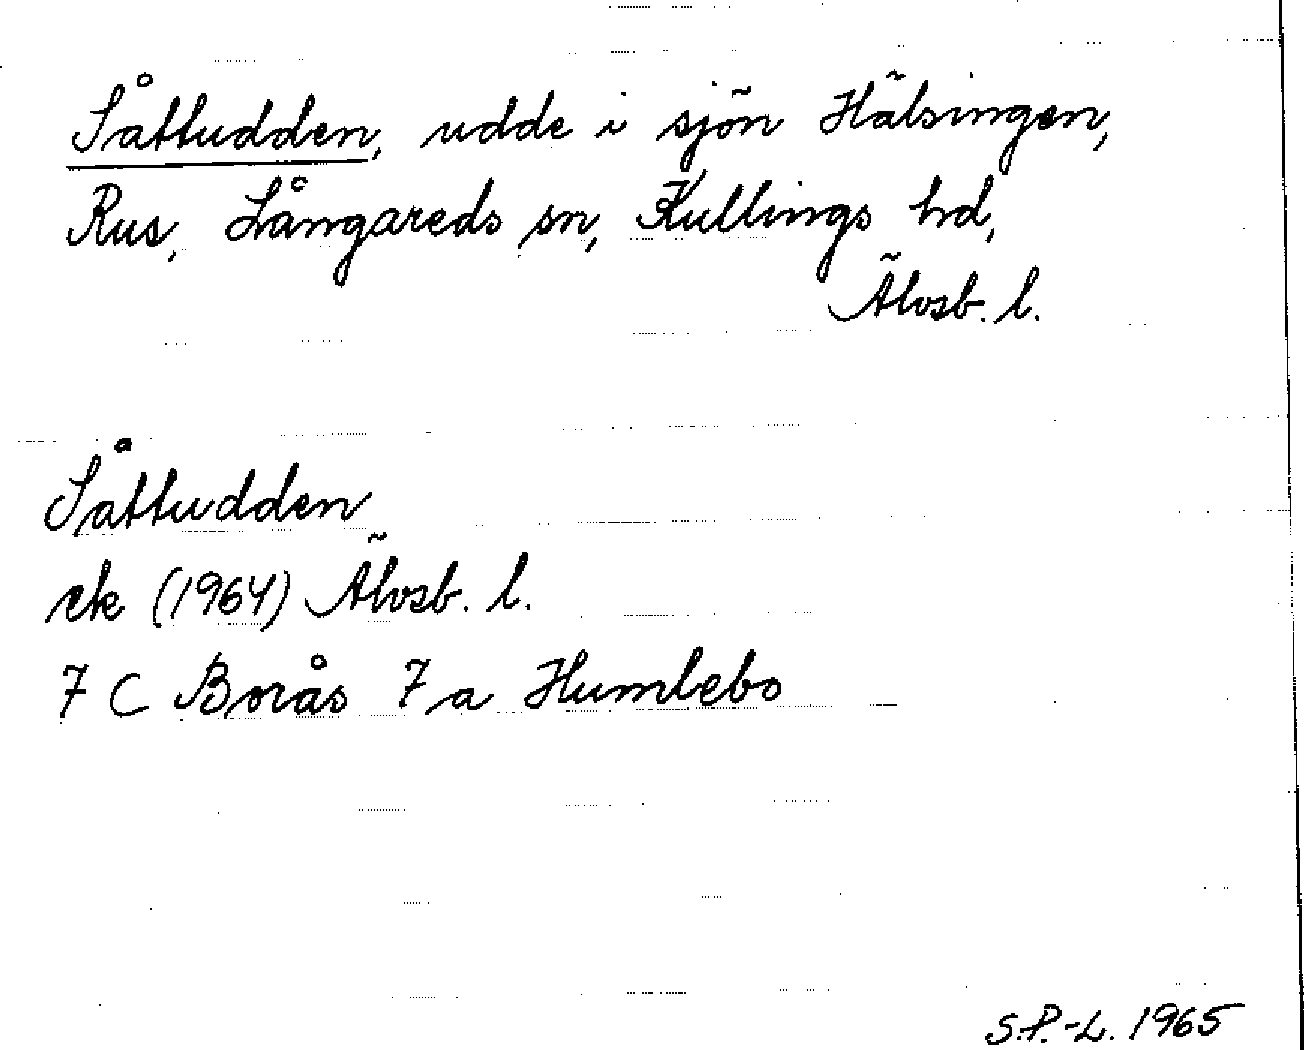 Såtudden, udde i sjön Hälsingen,
Rus, Långareds sn, Kullings hd,
Älvsb. l.
Såtudden
ek (1964) Älvsb. l.
7 C Borås 7 a Humlebo
S.P.-L. 1965